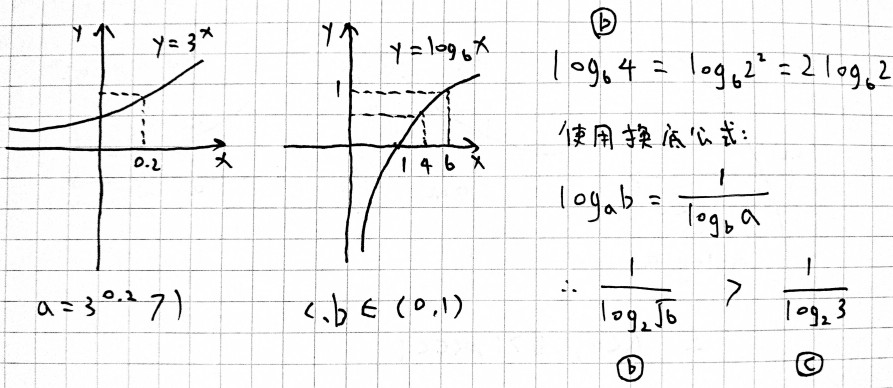 y
y = 3^x
0.2
x
a = 3^0.2 > 1
y
y = log₆x
1
1 4 6 x
c, b ∈ (0, 1)
ⓑ
log₆4 = log₆2² = 2log₆2
使用换底公式:
logₐb = 1/log_b a
∴ 1/log₂√6 > 1/log₂3
ⓑ ⓒ